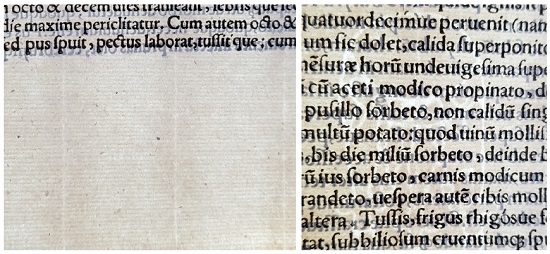 octo & decem dies
die maxime periclitatur. Cum autem octo &
ed pus ſpuit, pectus laborat,tuſſit que; cum
quatuordecimũ peruenit (nam
um ſic dolet, calida ſuperponito
mẽſuræ horũ undeuigeſima ſupe
cũ aceti modico propinato, d
puſillo ſorbeto, non calidũ ſing
multũ potato: quod uinũ molliſ
, bis die miliũ ſorbeto, deinde b
ũ ius ſorbeto, carnis modicum
randeto, ueſpera autẽ cibis moll
altera. Tuſſis, frigus rhigoſue ſ
tat, ſubbilioſum cruentumq; ſpu